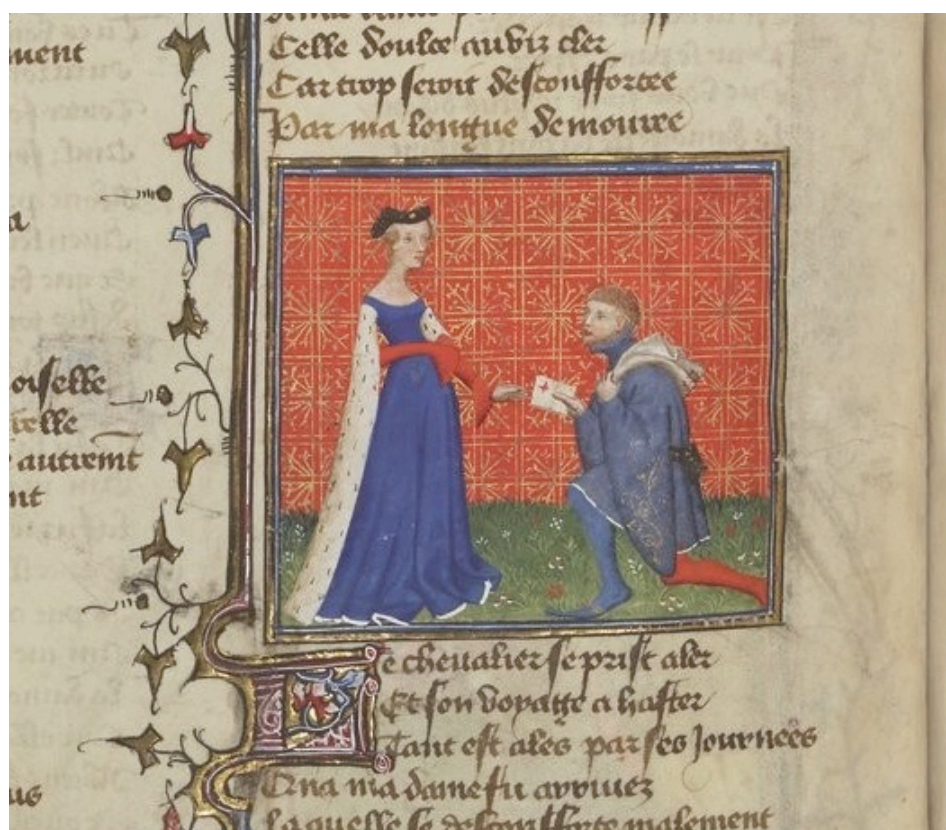 ment
a
oiselle
autremt
nt
us
Celle doulce au viz cler
Car trop seroit desconffortee
Par ma longue demouree
Le chevalier se prist aler
Et son voyage a haster
Tant est ales par ses Journees
Qua ma dame fu arrivez
La quelle se desconfforte malement